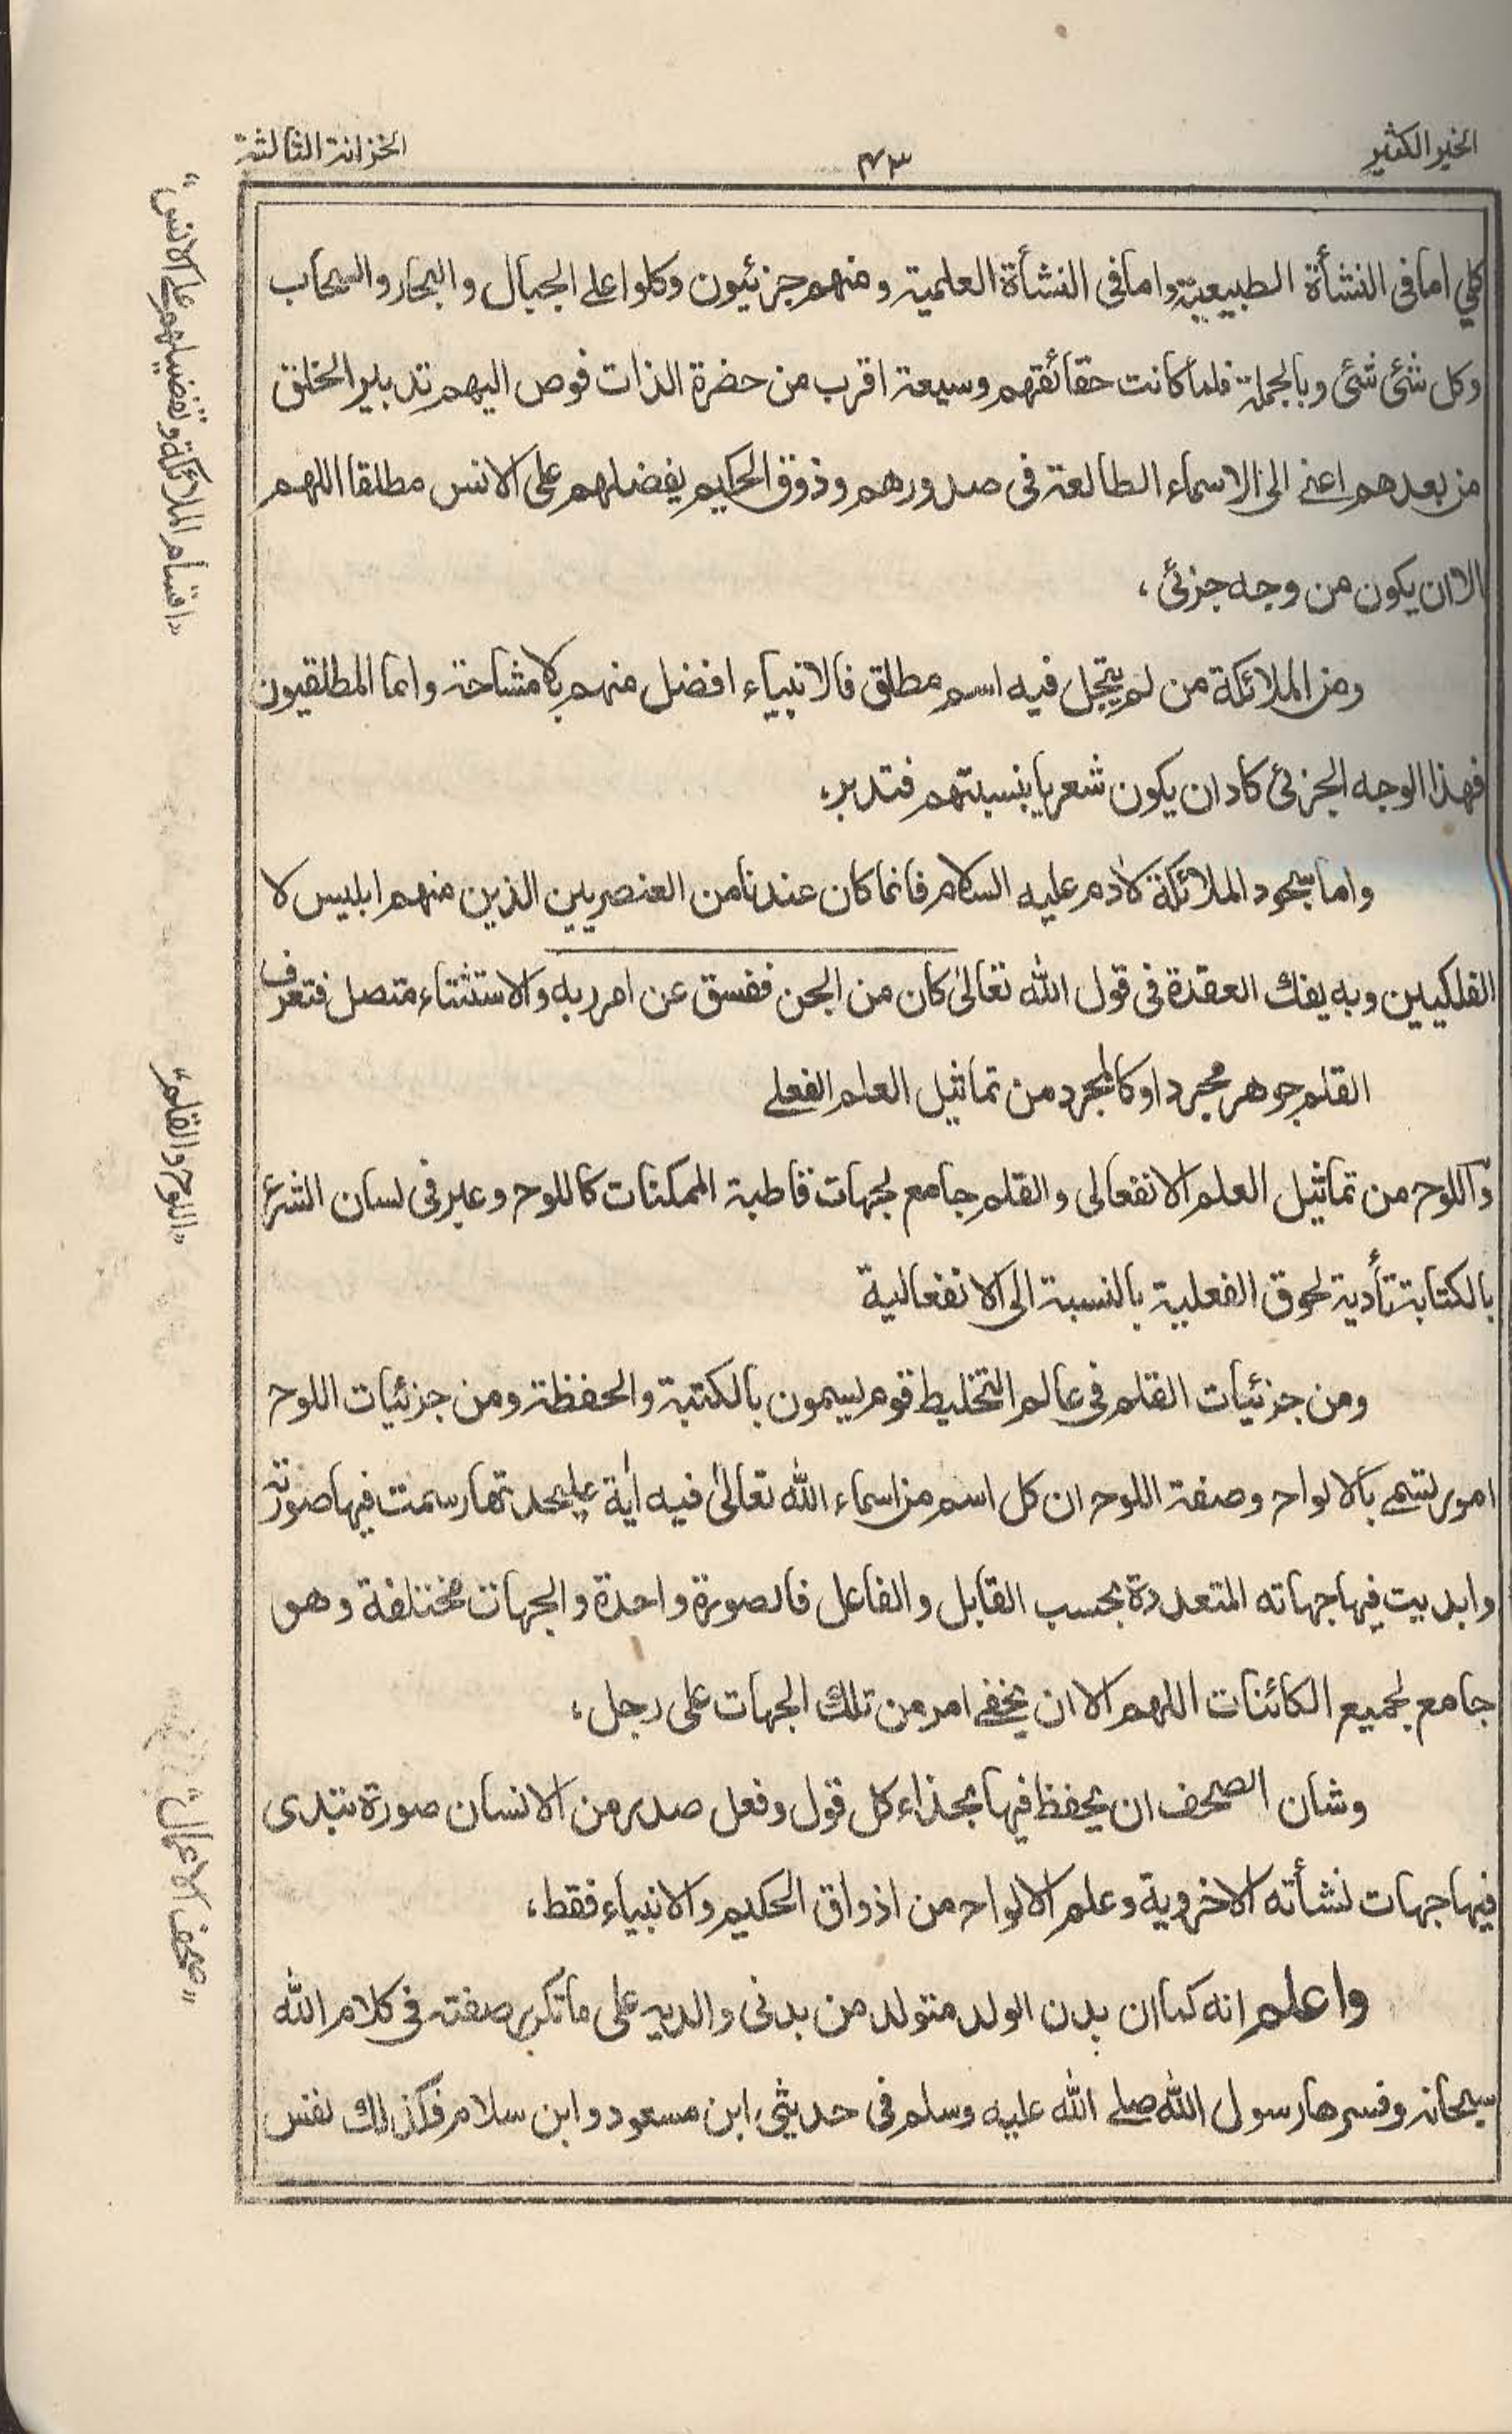 الخير الكثير
٤٣
الخزانة الثالثة
كلي اما فى النشأة الطبيعية واما فى النشأة العلمية ومنهم جزئيون وكلوا على الجبال والبحار والسحاب
وكل شئ شئ وبالجملة فلما كانت حقائقهم وسيعة اقرب من حضرة الذات فوض اليهم تدبير الخلق
من بعدهم اعنے الى الاسماء الطالعة فى صدورهم وذوق الحكيم يفضلهم على الانس مطلقا اللهم
الا ان يكون من وجه جزئى،
ومن الملائكة من لم يتجل فيه اسم مطلق فالانبياء افضل منهم بلا مشاحة واما المطلقيون
فهذا الوجه الجزئى كاد ان يكون شعريا بنسبتهم فتدبر،
واما سجود الملائكة لاٰدم عليه السلام فانما كان عندنا من العنصريين الذين منهم ابليس لا
الفلكيين وبه يفك العقدة فى قول الله تعالىٰ كان من الجن ففسق عن امر ربه والاستثناء متصل فتعرف
القلم جوهر مجرد او كالمجرد من تماثيل العلم الفعلے
واللوح من تماثيل العلم الانفعالى والقلم جامع لجهات قاطبة الممكنات كاللوح وعبر فى لسان الشرع
بالكتابة تأدية لحوق الفعلية بالنسبة الى الانفعالية
ومن جزئيات القلم فى عالم التخليط قوم يسمون بالكتبة والحفظة ومن جزئيات اللوح
امور تسمے بالالواح وصفة اللوح ان كل اسم من اسماء الله تعالىٰ فيه اٰية عليحدتها رسمت فيها صورته
وابديت فيها جهاته المتعددة بحسب القابل والفاعل فالصورة واحدة والجهات مختلفة وهو
جامع لجميع الكائنات اللهم الا ان يخفے امر من تلك الجهات على رجل،
وشان الصحف ان يحفظ فيها بحذاء كل قول وفعل صدر من الانسان صورة تبتدى
فيها جهات نشأته الاخروية وعلم الالواح من اذواق الحكيم والانبياء فقط،
واعلم انه كما ان بدن الولد متولد من بدنى والديه على ما تكرر صفته فى كلام الله
سبحانه وفسرها رسول الله صلے الله عليه وسلم فى حديثى ابن مسعود وابن سلام فكذلك نفس
"اقسام الملائكة وتفضيلهم على الانس"
"اللوح والقلم"
"صحف الاعمال"